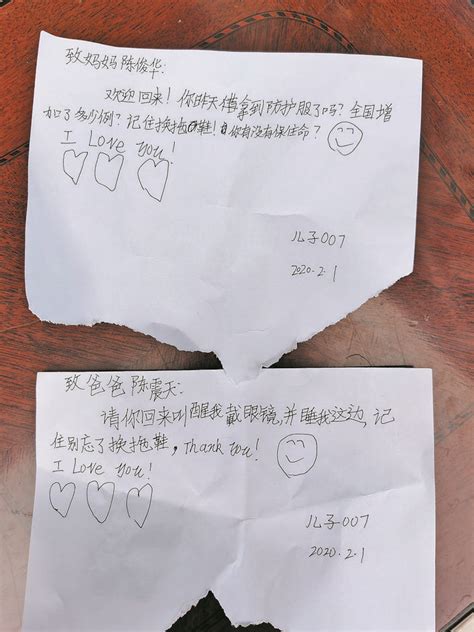 致妈妈陈俊华:
欢迎回来!你昨天拿到防护服了吗?全国增
加了多少例?记住换拖鞋!你有没有保住命?
I Love you!
儿子007
2020.2.1
致爸爸陈震天:
请你回来叫醒我戴眼镜,并睡我这边,记
住别忘了换拖鞋,Thank you!
I Love you!
儿子007
2020.2.1